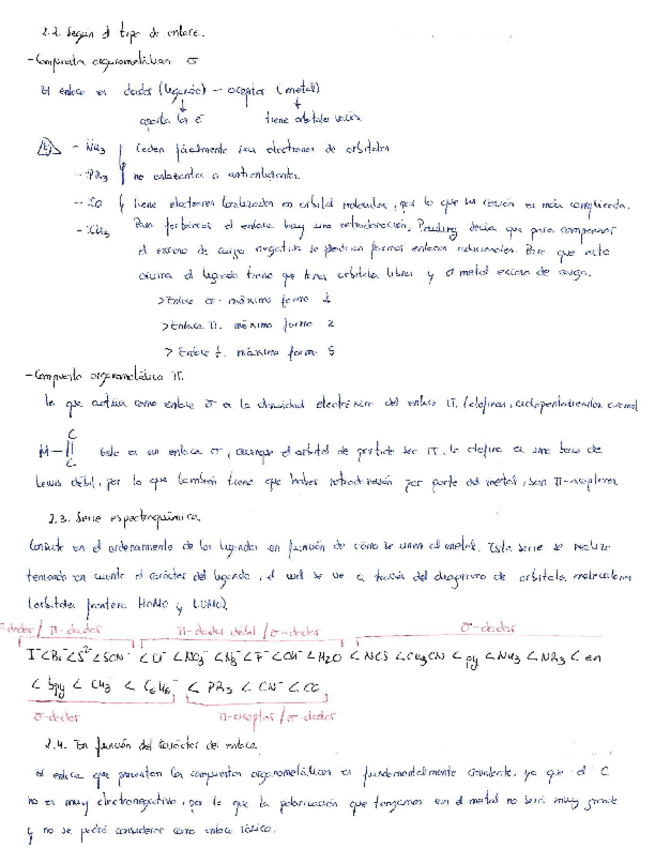 2.2. Según el tipo de enlace.
- Compuestos organometálicos σ
El enlace es dador (ligando) - aceptor (metal)
aporta los e⁻ tiene orbitales vacíos
Ej - NH₃ Ceden fácilmente sus electrones de orbitales
- PR₃ no enlazantes o antienlazantes
- CO tiene electrones localizados en orbital molecular, por lo que su cesión es más complicada.
- CH₃ Para fortalecer el enlace hay una retrodonación. Pauling decía que para compensar
el exceso de carga negativa se podrían formar enlaces adicionales. Para que esto
ocurra el ligando tiene que tener orbitales libres y el metal exceso de carga.
> Enlace σ. máximo forma 1
> Enlace π. máximo forma 2
> Enlace máximo forma 5
- Compuesto organometálico π.
lo que actúa como enlace σ es la densidad electrónica del enlace π. (olefinas, ciclopentadienilos
C
M - || Este es un enlace σ, aunque el orbital de partida sea π. la olefina es una base de
C
Lewis débil, por lo que también tiene que haber retrodonación por parte del metal, son π-aceptores
2.3. Serie espectroquímica.
Consiste en el ordenamiento de los ligandos en función de cómo se unen al metal. Esta serie se realiza
teniendo en cuenta el carácter del ligando, el cual se ve a través del diagrama de orbitales moleculares
(orbitales frontera HOMO y LUMO).
-dador / π-dador π-dador débil / σ-dador σ-dador
I⁻ < Br⁻ < S²⁻ < SCN⁻ < Cl⁻ < NO₃⁻ < N₃⁻ < F⁻ < OH⁻ < H₂O < NCS < CH₃CN < py < NH₃ < NR₃ < en
< bpy < CH₃⁻ < C₆H₆⁻ < PR₃ < CN⁻ < CO
σ-dador π-aceptor / σ-dador
2.4. En función del carácter del enlace.
El enlace que presentan los compuestos organometálicos es fundamentalmente covalente, ya que el C
no es muy electronegativo, por lo que la polarización que tengamos en el metal no será muy grande
y no se podrá considerar como enlace iónico.